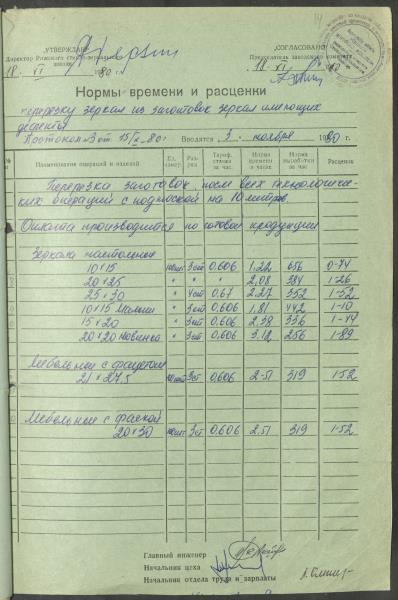 „УТВЕРЖДАЮ“ „СОГЛАСОВАНО“
Директор Рижского стекло-зеркального завода Председатель заводского комитета
18. VI 80 г. 18. VI 80
Нормы времени и расценки
перерезку зеркал из заготовок зеркал имеющих
дефекты
Протокол № от 15/X-80 г. Вводятся 3. ноября 1980
Наименование операций и изделий Ед. измер. Раз-ряд Тариф. ставка за час. Норма времени в часах Норма выработки за час Расценки
Перерезка заготовок после всех технологичес-
ких операций с подноской на 10 метров.
Оплата производится по готовой продукции
Зеркала настольные
10×15 100шт 3 сд 0,606 1,22 656 0-74
20×25 " " " 2,08 384 1-26
25×30 " 4 сд 0,67 2.27 352 1-52
10×15 " 3 сд 0,606 1,81 442 1-10
15×20 " 3 сд 0,606 2,38 336 1-44
20×20 Новинка " 3 сд 0,606 3,12 256 1-89
Мебельные с фацетом
21×27,5 100шт 3 сд 0,606 2-51 319 1-52
Мебельные с фаской
20×30 100шт 3 сд 0,606 2,51 319 1-52
Главный инженер
Начальник цеха
Начальник отдела труда и зарплаты